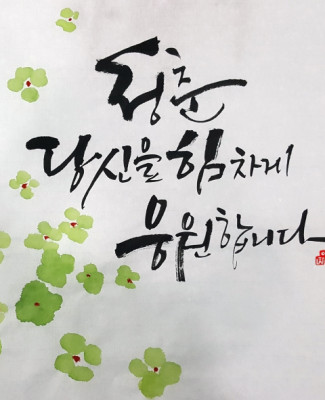 청춘
당신을 힘차게
응원합니다